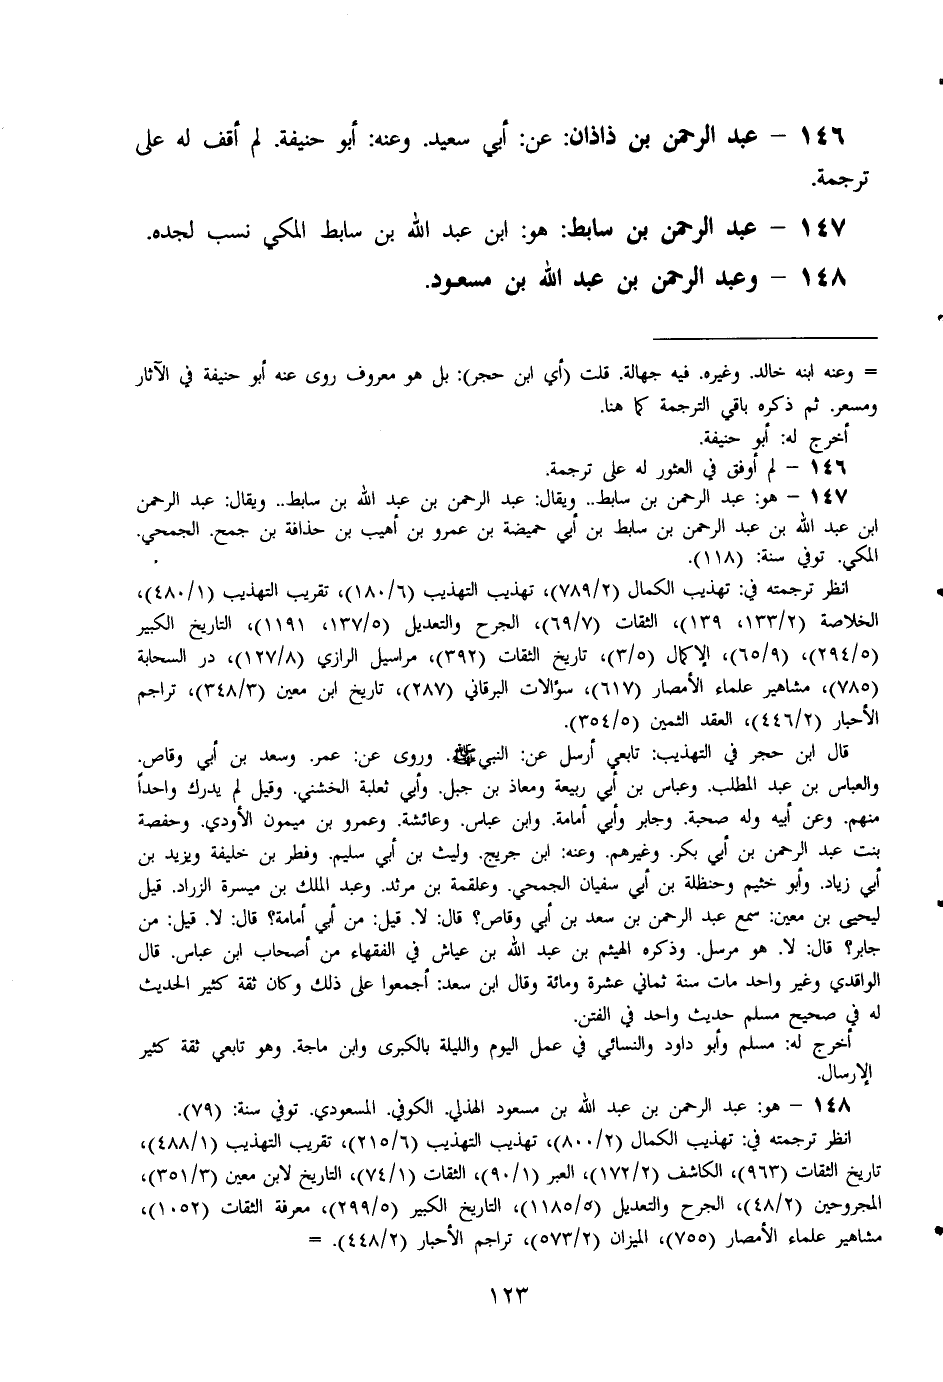 ١٤٦ - عبد الرحمن بن ذاذان: عن: أبي سعيد. وعنه: أبو حنيفة. لم أقف له على
ترجمة.
١٤٧ - عبد الرحمن بن سابط: هو: ابن عبد الله بن سابط المكي نسب لجده.
١٤٨ - وعبد الرحمن بن عبد الله بن مسعود.
= وعنه ابنه خالد. وغيره. فيه جهالة. قلت (أي ابن حجر): بل هو معروف روى عنه أبو حنيفة في الآثار
ومسعر. ثم ذكره باقي الترجمة كما هنا.
أخرج له: أبو حنيفة.
١٤٦ - لم أوفق في العثور له على ترجمة.
١٤٧ - هو: عبد الرحمن بن سابط.. ويقال: عبد الرحمن بن عبد الله بن سابط.. ويقال: عبد الرحمن
ابن عبد الله بن عبد الرحمن بن سابط بن أبي حميضة بن عمرو بن أهيب بن حذافة بن جمح. الجمحي.
المكي. توفي سنة: (١١٨).
انظر ترجمته في: تهذيب الكمال (٧٨٩/٢)، تهذيب التهذيب (١٨٠/٦)، تقريب التهذيب (٤٨٠/١)،
الخلاصة (١٣٣/٢، ١٣٩)، الثقات (٦٩/٧)، الجرح والتعديل (١٣٧/٥، ١١٩١)، التاريخ الكبير
(٢٩٤/٥)، (٦٥/٩)، الإكمال (٣/٥)، تاريخ الثقات (٣٩٢)، مراسيل الرازي (١٢٧/٨)، در السحابة
(٧٨٥)، مشاهير علماء الأمصار (٦١٧)، سؤالات البرقاني (٢٨٧)، تاريخ ابن معين (٣٤٨/٣)، تراجم
الأحبار (٤٤٦/٢)، العقد الثمين (٣٥٤/٥).
قال ابن حجر في التهذيب: تابعي أرسل عن: النبي ﷺ. وروى عن: عمر. وسعد بن أبي وقاص.
والعباس بن عبد المطلب. وعباس بن أبي ربيعة ومعاذ بن جبل. وأبي ثعلبة الخشني. وقيل لم يدرك واحداً
منهم. وعن أبيه وله صحبة. وجابر وأبي أمامة. وابن عباس. وعائشة. وعمرو بن ميمون الأودي. وحفصة
بنت عبد الرحمن بن أبي بكر. وغيرهم. وعنه: ابن جريج. وليث بن أبي سليم. وفطر بن خليفة ويزيد بن
أبي زياد. وأبو خثيم وحنظلة بن أبي سفيان الجمحي. وعلقمة بن مرثد. وعبد الملك بن ميسرة الزراد. قيل
ليحيى بن معين: سمع عبد الرحمن بن سعد بن أبي وقاص؟ قال: لا. قيل: من أبي أمامة؟ قال: لا. قيل: من
جابر؟ قال: لا. هو مرسل. وذكره الهيثم بن عبد الله بن عياش في الفقهاء من أصحاب ابن عباس. قال
الواقدي وغير واحد مات سنة ثماني عشرة ومائة وقال ابن سعد: أجمعوا على ذلك وكان ثقة كثير الحديث
له في صحيح مسلم حديث واحد في الفتن.
أخرج له: مسلم وأبو داود والنسائي في عمل اليوم والليلة بالكبرى وابن ماجة. وهو تابعي ثقة كثير
الإرسال.
١٤٨ - هو: عبد الرحمن بن عبد الله بن مسعود الهذلي. الكوفي. المسعودي. توفي سنة: (٧٩).
انظر ترجمته في: تهذيب الكمال (٨٠٠/٢)، تهذيب التهذيب (٢١٥/٦)، تقريب التهذيب (٤٨٨/١)،
تاريخ الثقات (٩٦٣)، الكاشف (١٧٢/٢)، العبر (٩٠/١)، الثقات (٧٤/١)، التاريخ لابن معين (٣٥١/٣)،
المجروحين (٤٨/٢)، الجرح والتعديل (١١٨٥/٥)، التاريخ الكبير (٢٩٩/٥)، معرفة الثقات (١٠٥٢)،
مشاهير علماء الأمصار (٧٥٥)، الميزان (٥٧٣/٢)، تراجم الأحبار (٤٤٨/٢). =
١٢٣